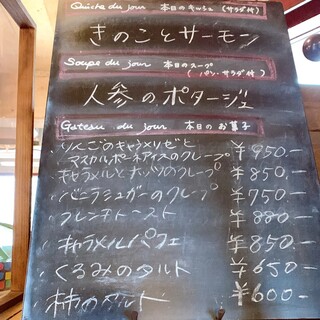 Quiche du jour 本日のキッシュ (サラダ付)
きのことサーモン
Soupe du jour 本日のスープ
(パン・サラダ付)
人参のポタージュ
Gateau du jour 本日のお菓子
・りんごのキャラメリゼと
マスカルポーネアイスのクレープ ¥950.-
・キャラメルとナッツのクレープ ¥850.-
・バニラシュガーのクレープ ¥750-
・フレンチトースト ¥880-
・キャラメルパフェ ¥850.-
・くるみのタルト ¥650-
・柿のタルト ¥600-